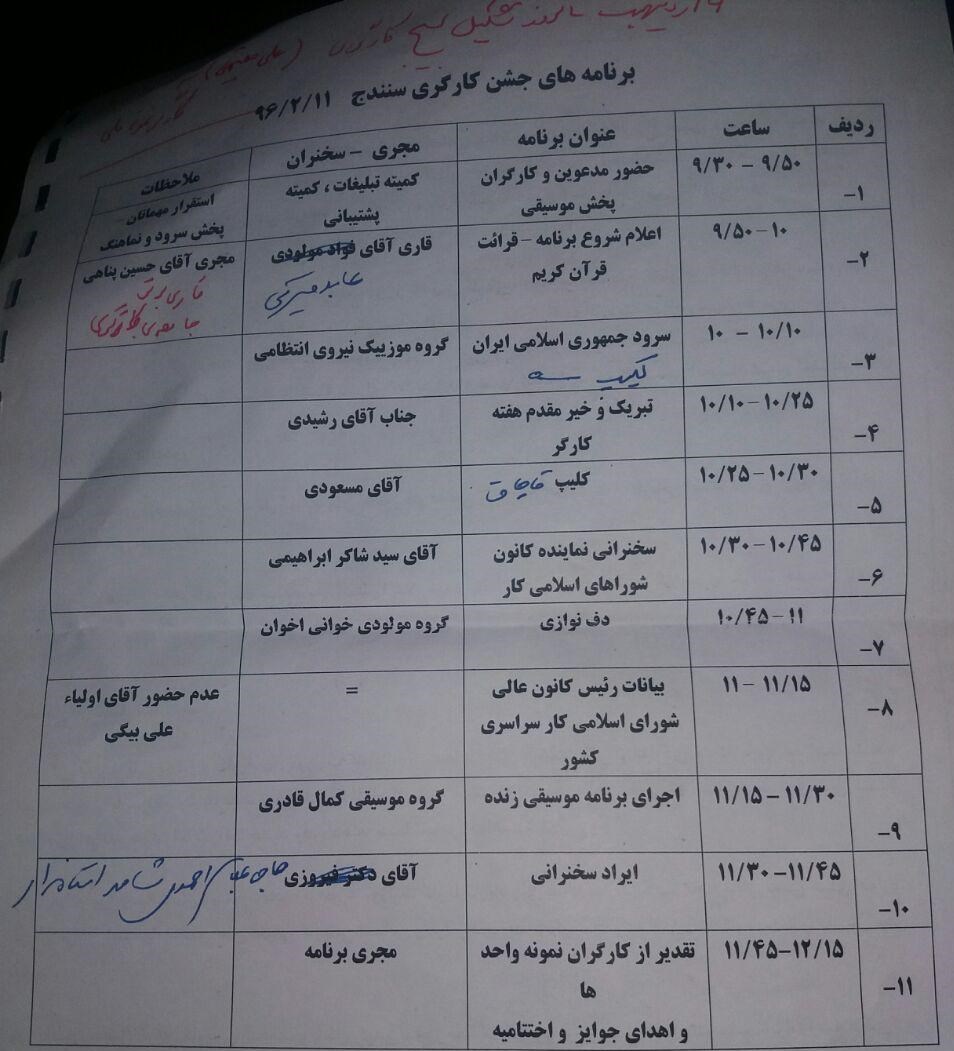 برنامه های جشن کارگری سنندج ۹۶/۲/۱۱
ردیف ساعت عنوان برنامه مجری - سخنران ملاحظات
۱- ۹/۳۰ - ۹/۵۰ حضور مدعوین و کارگران کمیته تبلیغات ، کمیته استقرار مهمانان -
پخش موسیقی پشتیبانی پخش سرود و نماهنگ
۲- ۹/۵۰-۱۰ اعلام شروع برنامه - قرائت قاری آقای فواد مولودی مجری آقای حسین پناهی
قرآن کریم
۳- ۱۰ - ۱۰/۱۰ سرود جمهوری اسلامی ایران گروه موزییک نیروی انتظامی
کلیپ
۴- ۱۰/۱۰-۱۰/۲۵ تبریک و خیر مقدم هفته جناب آقای رشیدی
کارگر
۵- ۱۰/۲۵-۱۰/۳۰ کلیپ قاچاق آقای مسعودی
۶- ۱۰/۳۰-۱۰/۴۵ سخنرانی نماینده کانون آقای سید شاکر ابراهیمی
شوراهای اسلامی کار
۷- ۱۰/۴۵-۱۱ دف نوازی گروه مولودی خوانی اخوان
۸- ۱۱- ۱۱/۱۵ بیانات رئیس کانون عالی = عدم حضور آقای اولیاء
شورای اسلامی کار سراسری علی بیگی
کشور
۹- ۱۱/۱۵-۱۱/۳۰ اجرای برنامه موسیقی زنده گروه موسیقی کمال قادری
۱۰- ۱۱/۳۰-۱۱/۴۵ ایراد سخنرانی آقای دکتر فیروزی
۱۱- ۱۱/۴۵-۱۲/۱۵ تقدیر از کارگران نمونه واحد مجری برنامه
ها
و اهدای جوایز و اختتامیه